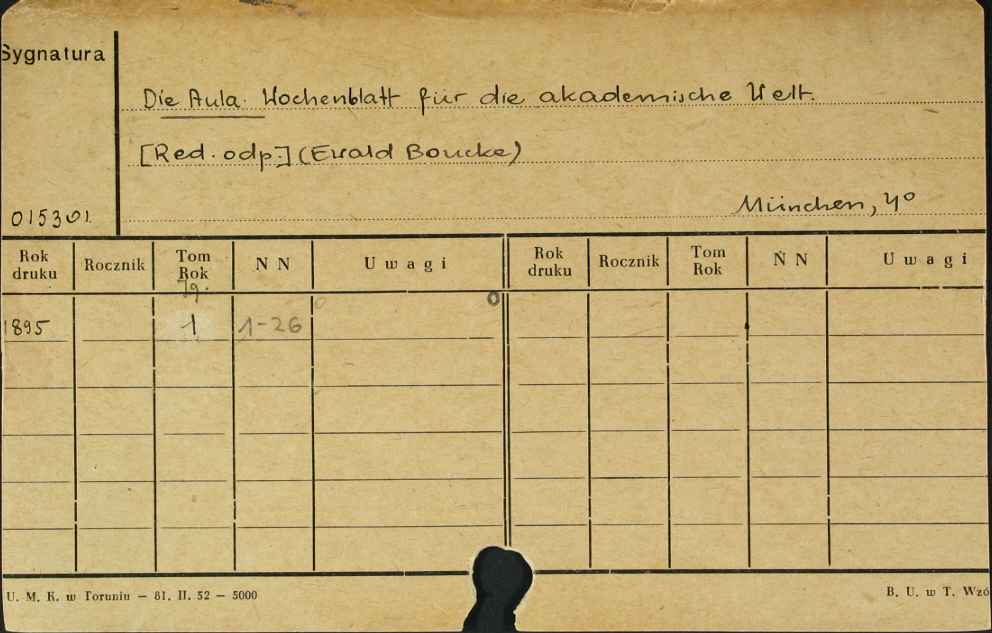 Sygnatura
Die Aula. Wochenblatt für die akademische Welt.
[Red. odp.:] (Ewald Boucke)
München, 4°
015301.
Rok druku Rocznik Tom Rok N N Uwagi Rok druku Rocznik Tom Rok N N Uwagi
Jg.
1895 1 1-26
U. M. K. w Toruniu — 81. II. 52 — 5000
B. U. w T. Wzó